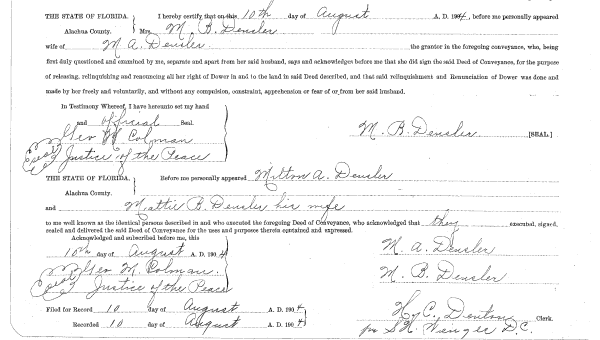 THE STATE OF FLORIDA. I hereby certify that on this 10th day of August A. D. 1904, before me personally appeared
Alachua County. Mrs. M. B. Densler
wife of M A. Densler the grantor in the foregoing conveyance, who, being
first duly questioned and examined by me, separate and apart from her said husband, says and acknowledges before me that she did sign the said Deed of Conveyance, for the purpose
of releasing, relinquishing and renouncing all her right of Dower in and to the land in said Deed described, and that said relinquishment and Renunciation of Dower was done and
made by her freely and voluntarily, and without any compulsion, constraint, apprehension or fear of or from her said husband.
In Testimony Whereof, I have hereunto set my hand
and official Seal.
Geo M Colman M. B. Densler [SEAL]
Seal Justice of the Peace
THE STATE OF FLORIDA. Before me personally appeared Milton A. Densler
Alachua County.
and Mattie B. Densler his wife
to me well known as the identical persons described in and who executed the foregoing Deed of Conveyance, who acknowledged that they executed, signed,
sealed and delivered the said Deed of Conveyance for the uses and purposes therein contained and expressed.
Acknowledged and subscribed before me, this
10th day of August A. D. 1904 M. A. Densler
Geo M. Colman. M. B. Densler
Seal Justice of the Peace
Filed for Record 10 day of August A. D. 1904 H. C. Denton Clerk.
Recorded 10 day of August A. D. 1904 per S. H. Wenger D. C.